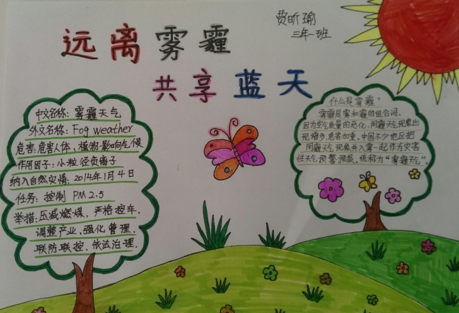 远离雾霾
共享蓝天
费昕瑜
三年一班
中文名称：雾霾天气
外文名称：Fog weather
危害：危害人体、植物，影响气候
作用因子：小粒径负离子
纳入自然灾情：2014年1月4日
任务：控制 PM2.5
举措：压减燃煤、严格控车、
调整产业、强化管理、
联防联控、依法治理.
什么是雾霾？
雾霾是雾和霾的组合词。
因为空气质量的恶化，阴霾天气现象出
现增多，危害加重。中国不少地区把
阴霾天气现象并入雾一起作为灾害
性天气预警预报。统称为“雾霾天气”。